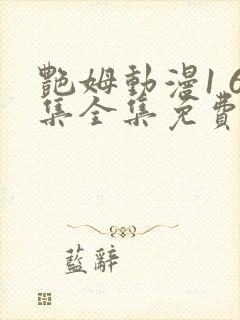 艷姆動漫1 6
集全集免費
藍辭